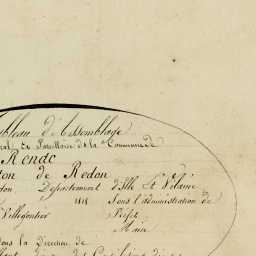 ableau d'Assemblage
ral et Parcellaire de la Commune de
Rende
ton de Redon
don Département d'Ille Et Vilaine
1818 Sous l'administration de
Villegontier Préfet
Maire
Sous la Direction de